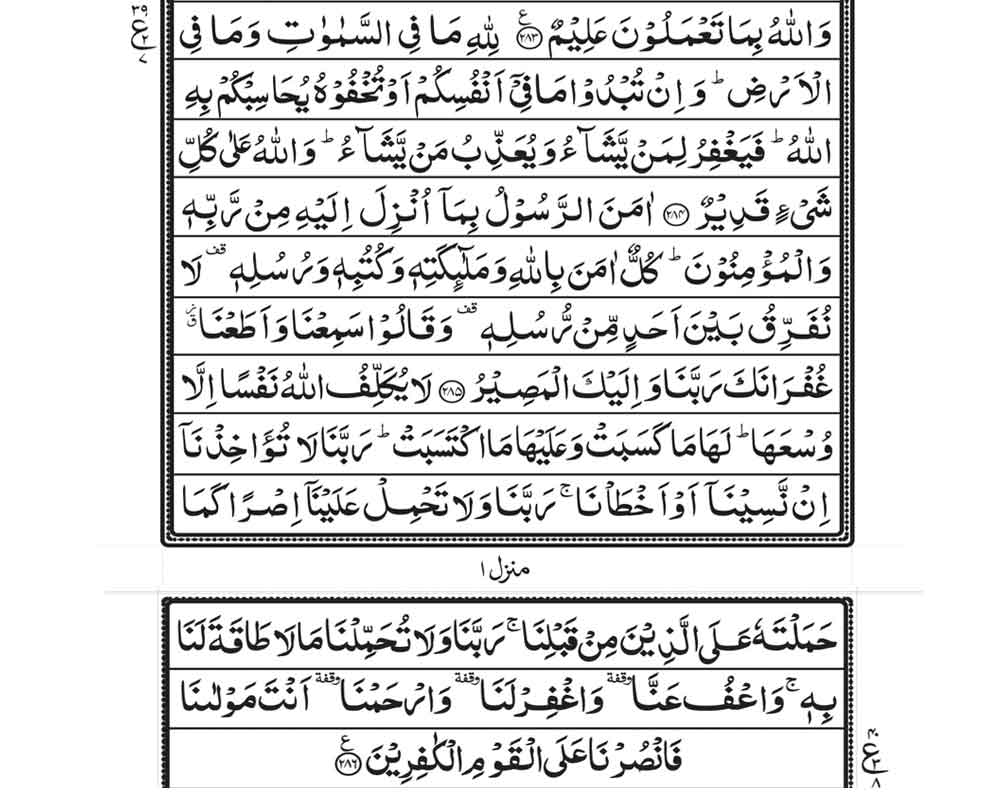 وَاللّٰهُ بِمَا تَعْمَلُوْنَ عَلِيْمٌ ﴿۲۸۳﴾ ع لِلّٰهِ مَا فِي السَّمٰوٰتِ وَمَا فِي
الْاَرْضِ ؕ وَاِنْ تُبْدُوْا مَا فِيْۤ اَنْفُسِكُمْ اَوْ تُخْفُوْهُ يُحَاسِبْكُمْ بِهِ
اللّٰهُ ؕ فَيَغْفِرُ لِمَنْ يَّشَآءُ وَيُعَذِّبُ مَنْ يَّشَآءُ ؕ وَاللّٰهُ عَلٰى كُلِّ
شَيْءٍ قَدِيْرٌ ﴿۲۸۴﴾ اٰمَنَ الرَّسُوْلُ بِمَاۤ اُنْزِلَ اِلَيْهِ مِنْ رَّبِّهٖ
وَالْمُؤْمِنُوْنَ ؕ كُلٌّ اٰمَنَ بِاللّٰهِ وَمَلٰٓئِكَتِهٖ وَكُتُبِهٖ وَرُسُلِهٖ قف لَا
نُفَرِّقُ بَيْنَ اَحَدٍ مِّنْ رُّسُلِهٖ قف وَقَالُوْا سَمِعْنَا وَاَطَعْنَا
غُفْرَانَكَ رَبَّنَا وَاِلَيْكَ الْمَصِيْرُ ﴿۲۸۵﴾ لَا يُكَلِّفُ اللّٰهُ نَفْسًا اِلَّا
وُسْعَهَا ؕ لَهَا مَا كَسَبَتْ وَعَلَيْهَا مَا اكْتَسَبَتْ ؕ رَبَّنَا لَا تُؤَاخِذْنَاۤ
اِنْ نَّسِيْنَاۤ اَوْ اَخْطَاْنَا ۚ رَبَّنَا وَلَا تَحْمِلْ عَلَيْنَاۤ اِصْرًا كَمَا
منزل ۱
حَمَلْتَهٗ عَلَى الَّذِيْنَ مِنْ قَبْلِنَا ۚ رَبَّنَا وَلَا تُحَمِّلْنَا مَا لَا طَاقَةَ لَنَا
بِهٖ ۚ وَاعْفُ عَنَّا وقفة وَاغْفِرْ لَنَا وقفة وَارْحَمْنَا وقفة اَنْتَ مَوْلٰىنَا
فَانْصُرْنَا عَلَى الْقَوْمِ الْكٰفِرِيْنَ ﴿۲۸۶﴾ ع